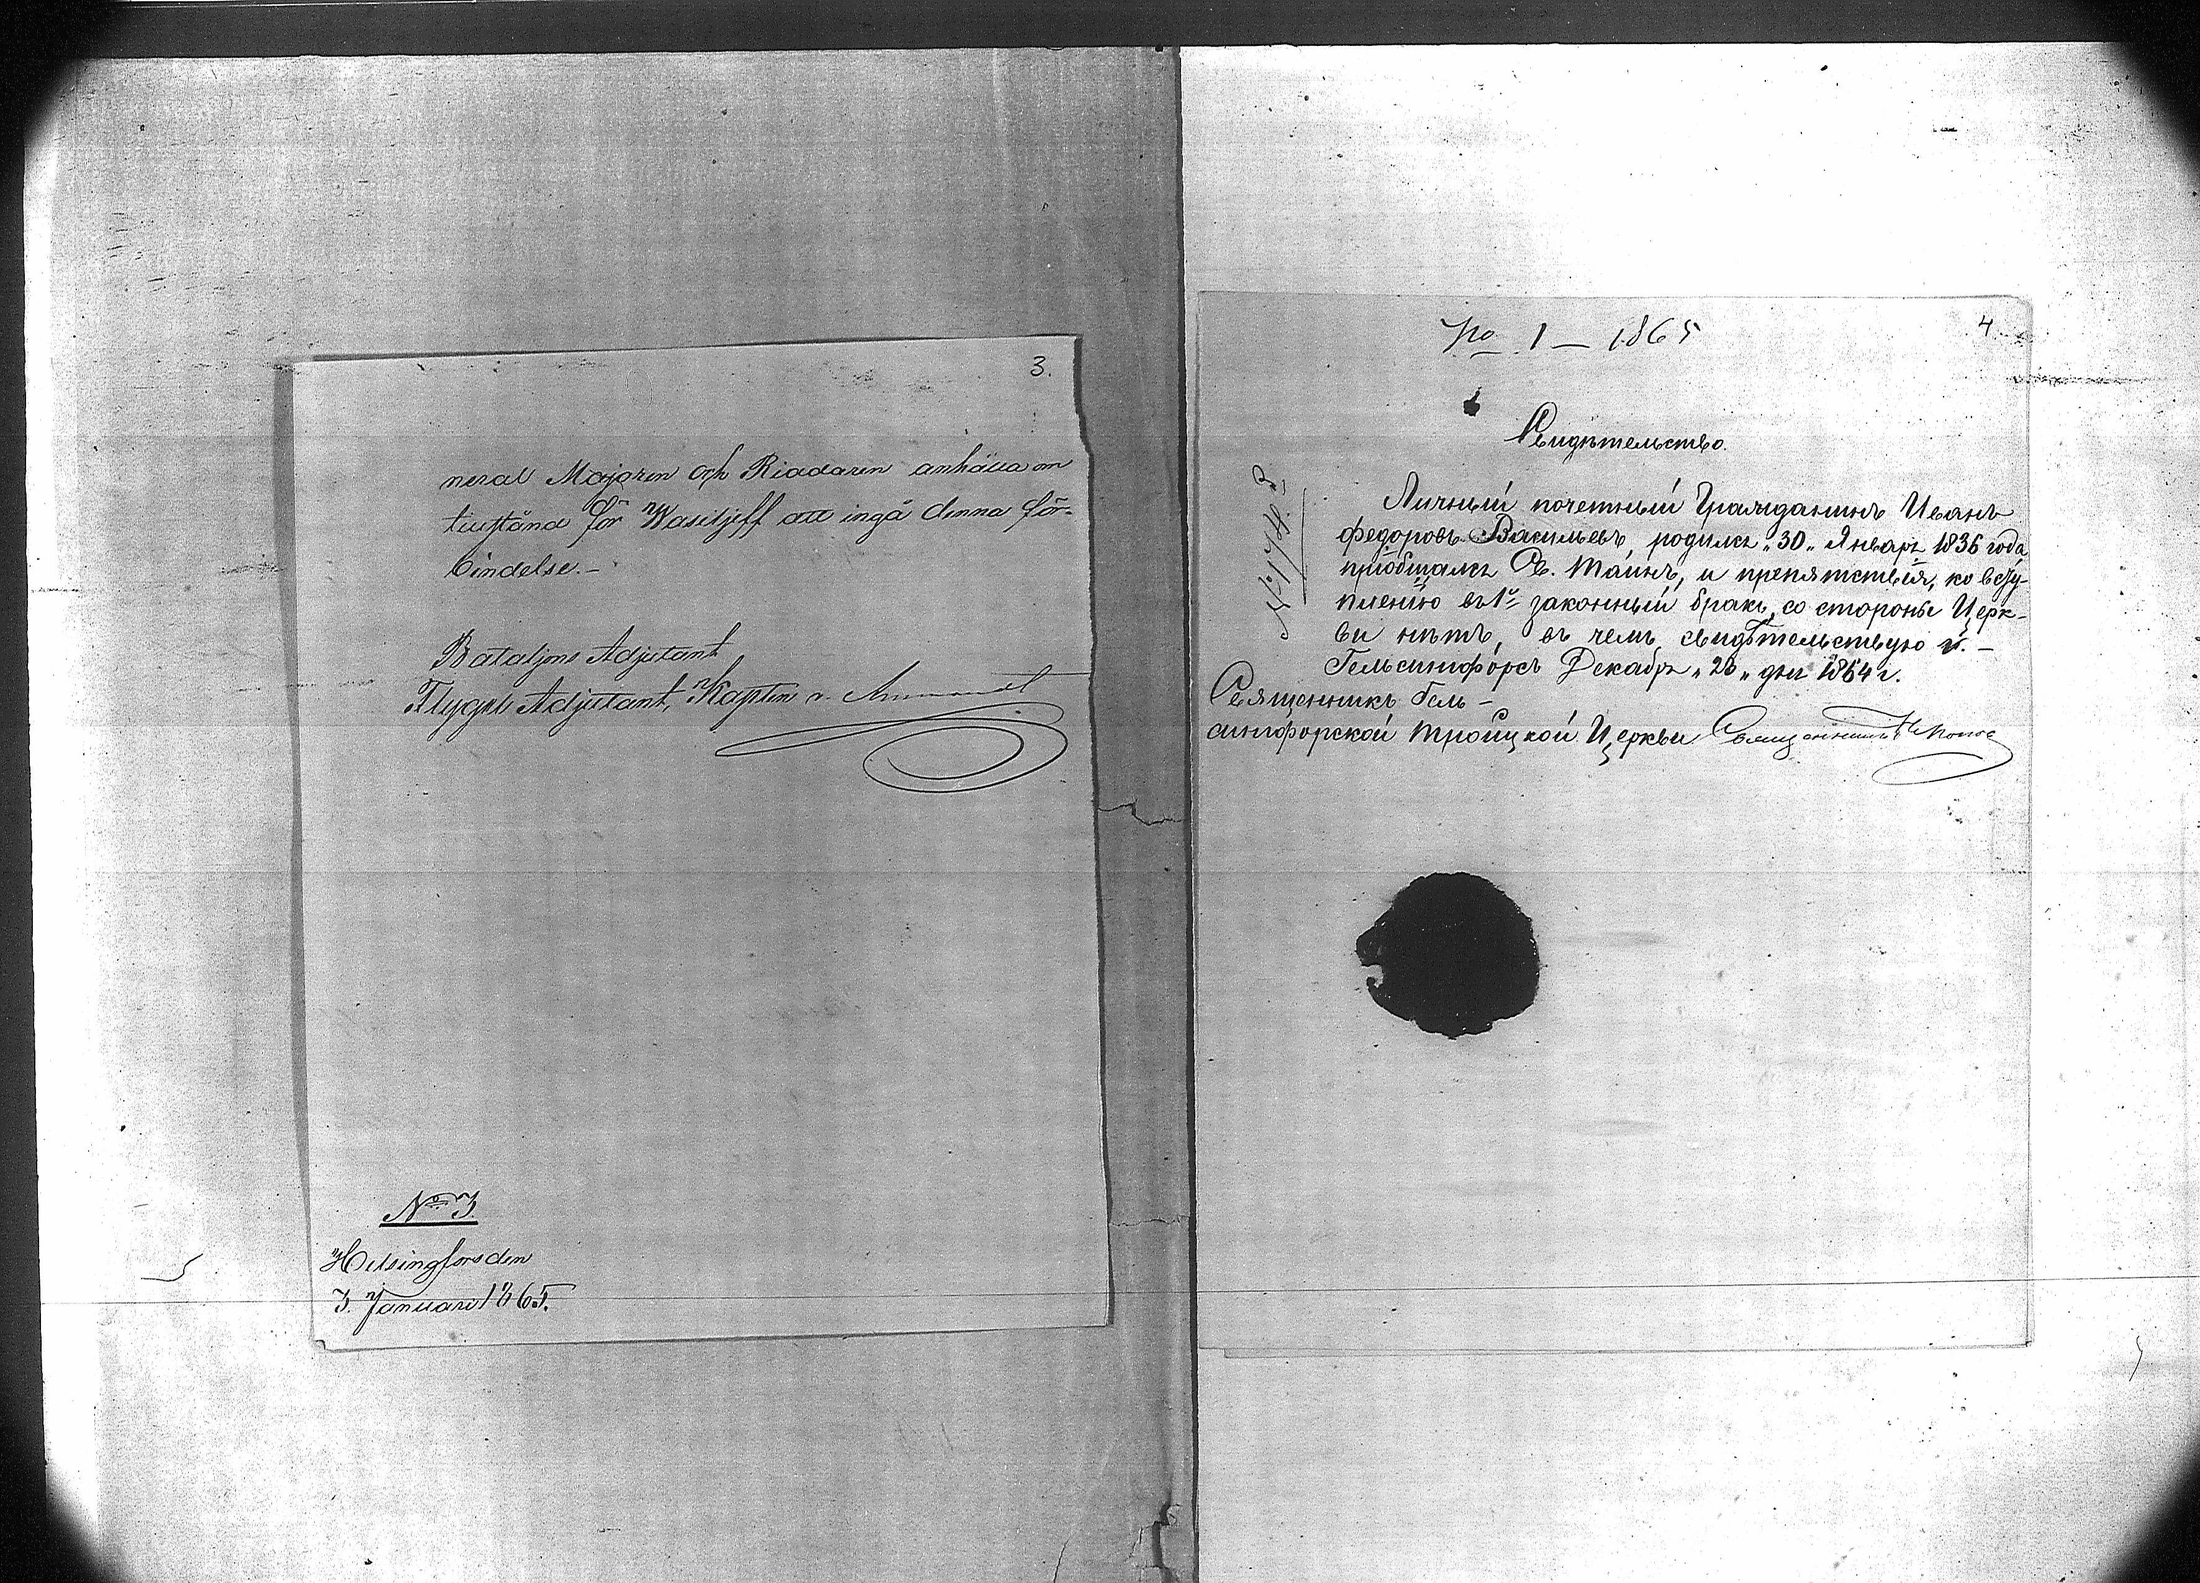 3.
neral Majoren och Riddaren anhålla om
tillstånd för Wasiljeff att ingå denna för-
bindelse.-
Bataljons Adjutant
Flygel Adjutant, Kapten
No 3.
Helsingfors den
3. Januari 1865.
No 1 — 1865
4.
Свидѣтельство.
№ 174.
Личный почетный Гражданинъ Иванъ
Федоровъ Васильевъ, родился „30„ Января 1836 года,
пріобщался Св. Таинъ, и препятствій, ко всту-
пленію въ 1й законный бракъ, со стороны Церк-
ви нѣтъ, въ чемъ свидѣтельствую
Гельсингфорсъ Декабря „28„ дня 1864 г.
Священникъ Гель-
сингфорской Троицкой Церкви Священникъ Н Попов